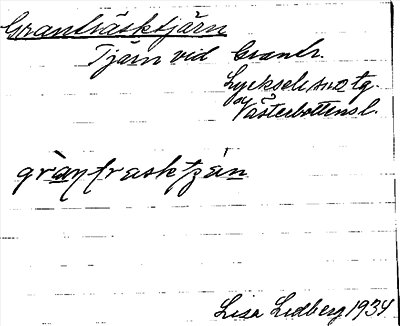 Granträsktjärn
Tjärn vid Grantr.
Lycksele sn o tg.
Västerbottens l.
gràntrasktjän
Lisa Lidberg 1934